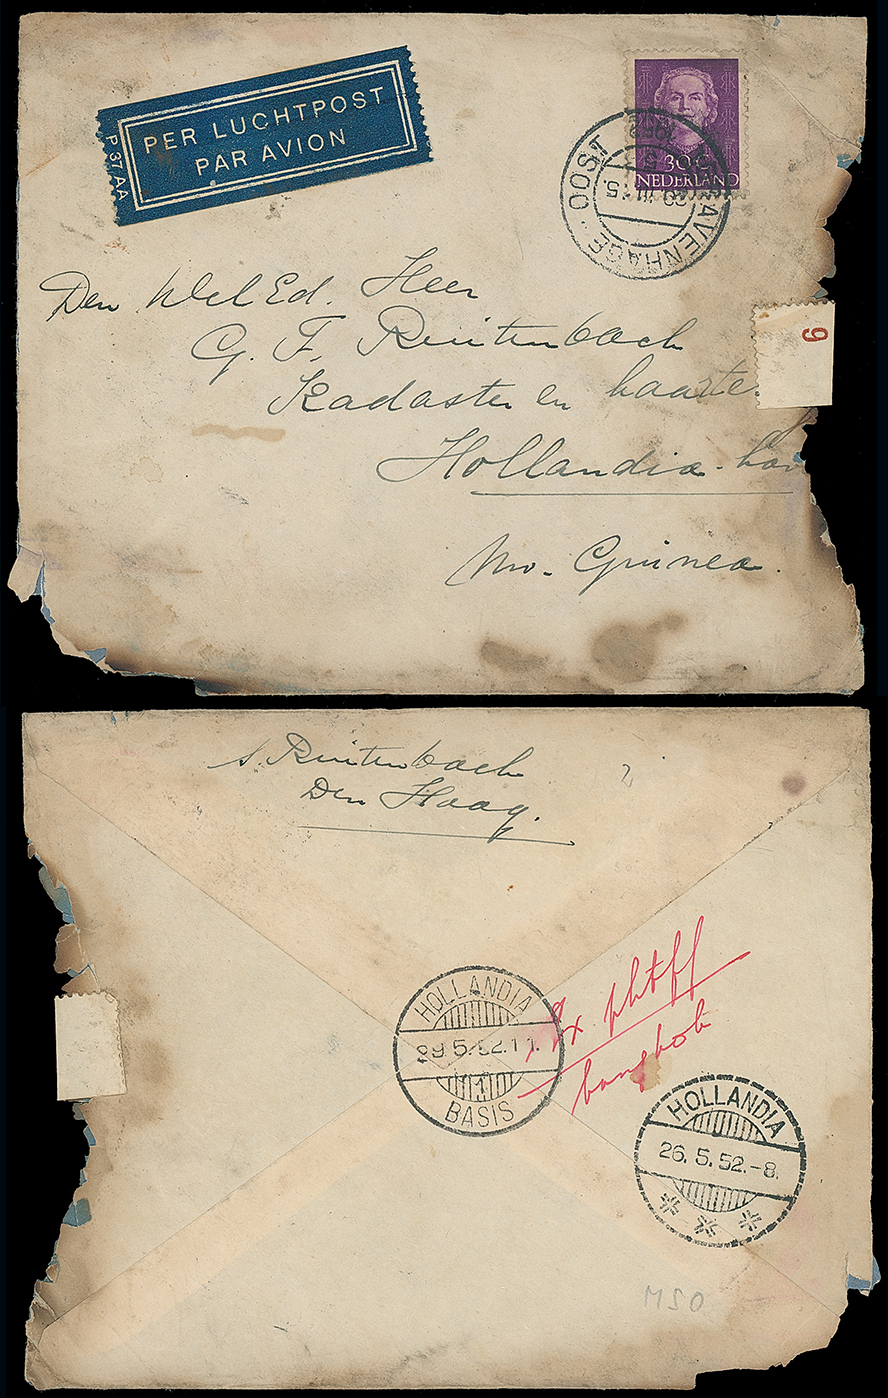 PER LUCHTPOST
PAR AVION
P 37 AA
30
NEDERLAND
'S GRAVENHAGE · OOST 1
1952
Den Wel Ed. Heer
G. F. Ruitenbach
Kadaster en kaarte
Hollandia-hav
Nw. Guinea.
9
S. Ruitenbach
Den Haag.
2
HOLLANDIA
29.5.52.11.
1
BASIS
bangkok
HOLLANDIA
26.5.52.-8.
MSO